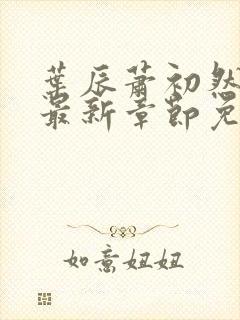 葉辰蕭初然
最新章節免
如意妞妞